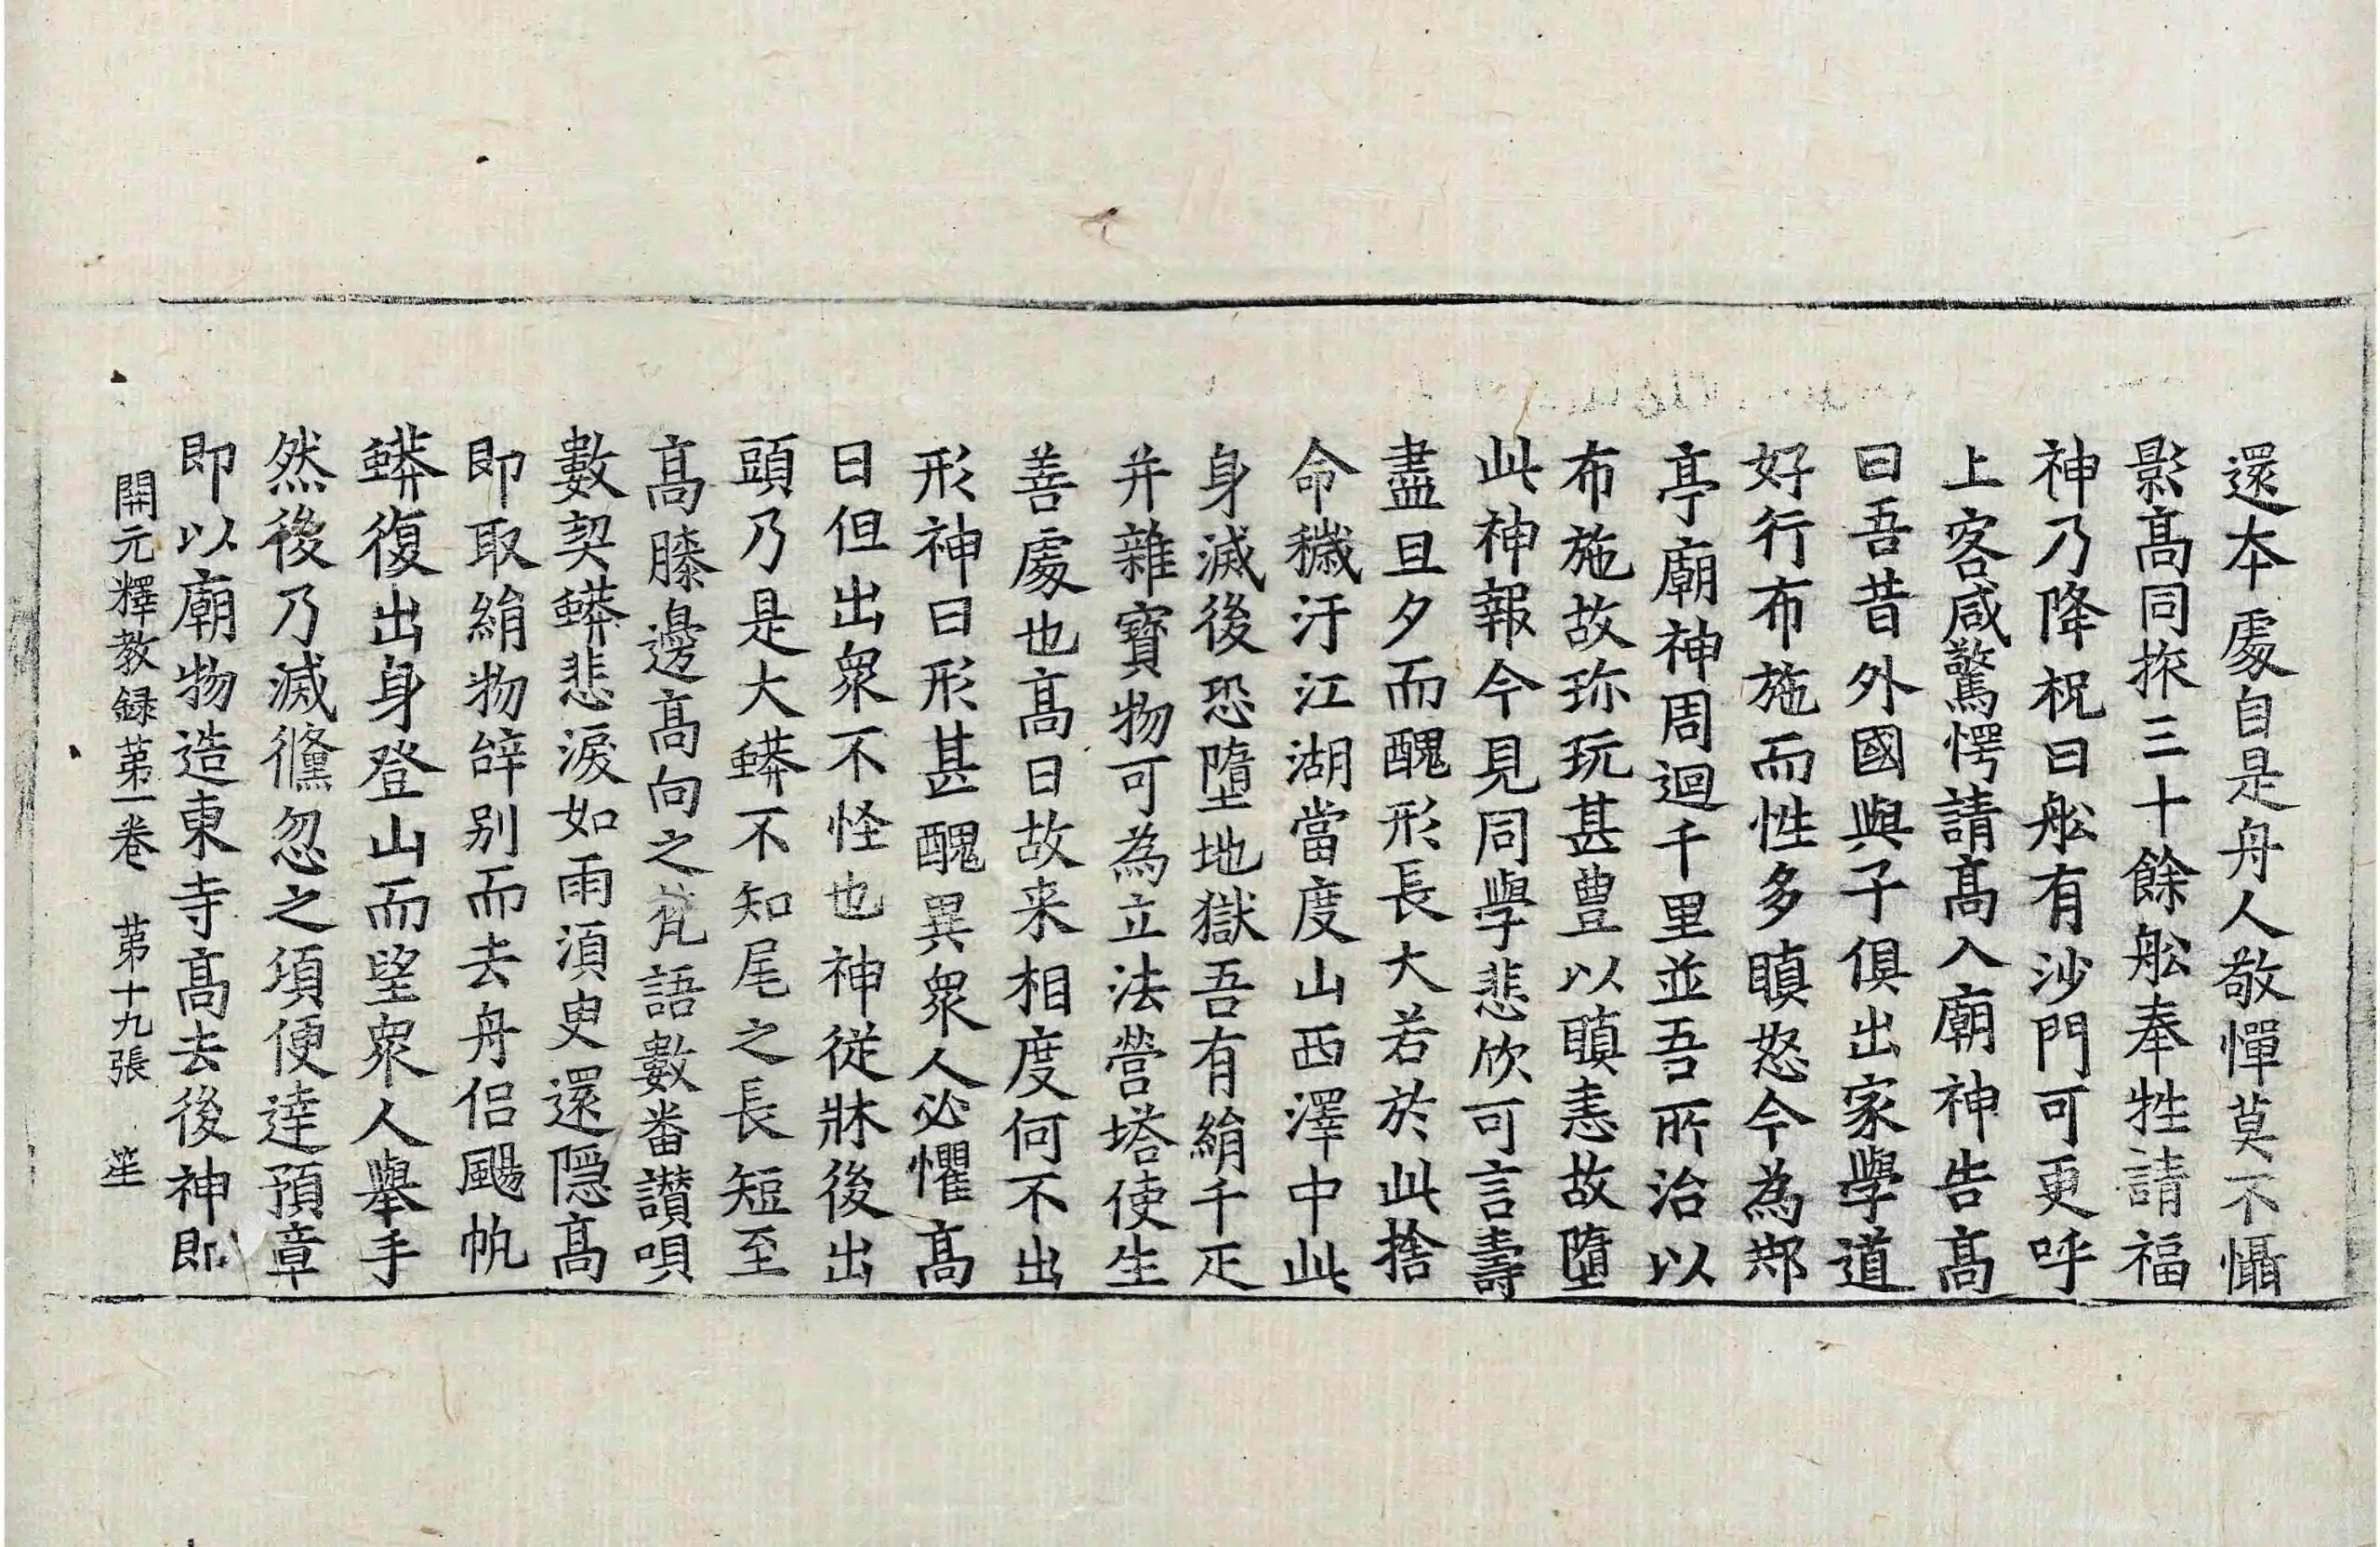 還夲䖏自是舟人敬憚莫不懾
影髙同旅三十餘舩奉牲請福
神乃降柷曰舩有沙門可更呼
上客咸驚愕請髙入廟神告髙
曰吾昔外國與子俱出家學道
好行布施而性多瞋怒今為䢼
亭廟神周迴千里並吾所治以
布施故珎玩甚豊以瞋恚故墮
此神報今見同學悲欣可言壽
盡旦夕而醜形長大若於此捨
命穢汙江湖當度山西澤中此
身滅後恐墮地獄吾有絹千疋
并雜寶物可為立法營塔使生
善䖏也髙曰故来相度何不出
形神曰形甚醜異衆人必懼髙
曰但出衆不怪也神從牀後出
頭乃是大蟒不知尾之長短至
髙膝邊髙向之梵語數番讃唄
數契蟒悲淚如雨湏臾還隠髙
即取絹物辝别而去舟侣颺帆
蟒復出身登山而望衆人舉手
然後乃滅儵忽之頃便達預章
即以廟物造東寺髙去後神即
開元釋教録苐一卷 苐十九張 笙